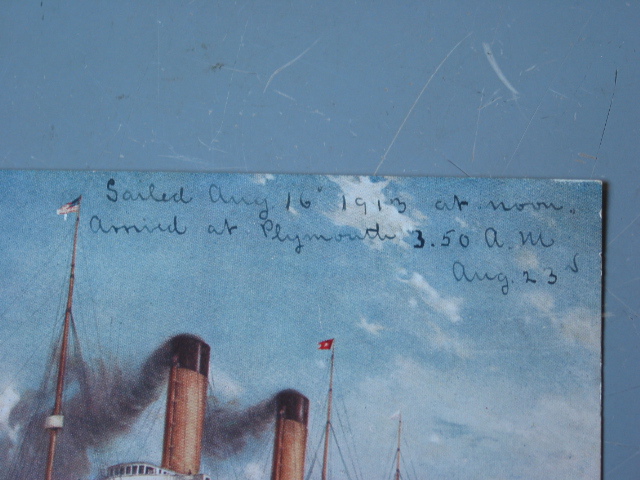 Sailed Aug 16" 1913 at noon.
Arrived at Plymouth 3.50 A.M
Aug. 23d